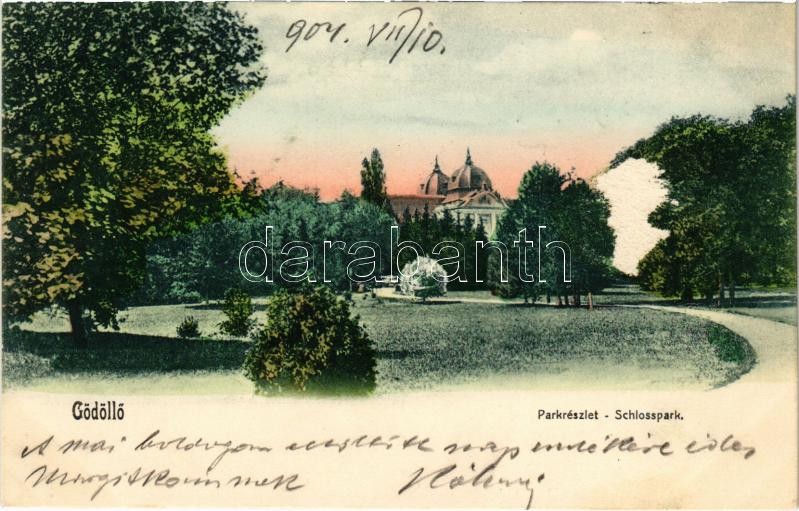 904. VII/10.
darabanth
Gödöllő
Parkrészlet - Schlosspark.
A mai boldogan nap emlékére édes
Margitkomnak